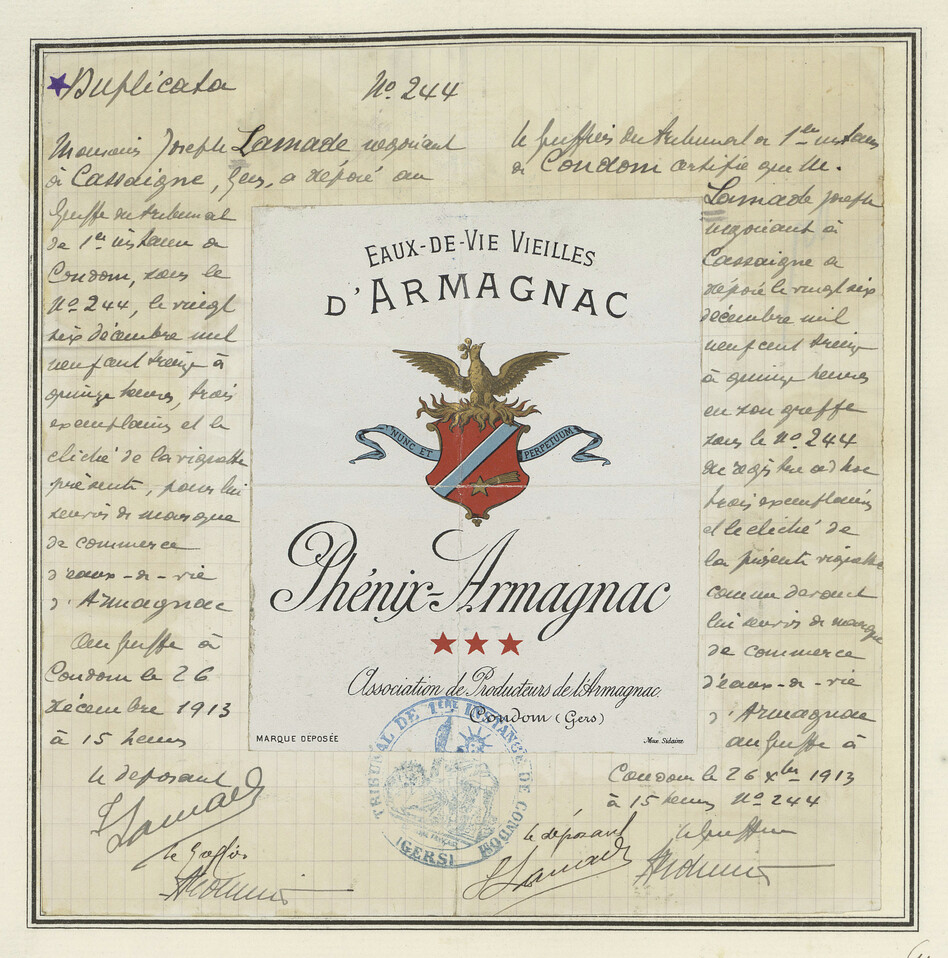 Duplicata
No. 244
Monsieur Joseph Lamade négociant
à Cassaigne, Gers, a déposé au
Greffe du tribunal
de 1ère instance de
Condom, sous le
No. 244, le vingt
six décembre mil
neuf cent treize à
quinze heures, trois
exemplaires et le
cliché de la vignette
présente, pour lui
servir de marque
de commerce
d'eaux-de-vie
d'Armagnac
Au greffe à
Condom le 26
décembre 1913
à 15 heures
le déposant
J Lamade
le Greffier
EAUX-DE-VIE VIEILLES
D'ARMAGNAC
NUNC ET PERPETUUM
Phénix-Armagnac
Association de Producteurs de l'Armagnac
CONDOM (GERS)
MARQUE DÉPOSÉE
Max. Sidaine
TRIBUNAL DE 1ÈRE INSTANCE DE CONDOM
(GERS)
le greffier du tribunal de 1ère instance
de Condom certifie que M.
Lamade Joseph
négociant à
Cassaigne a
déposé le vingt six
décembre mil
neuf cent treize
à quinze heures
en son greffe
sous le No 244
du registre ad hoc
trois exemplaires
et le cliché de
la présente vignette
comme devant
lui servir de marque
de commerce
d'eaux-de-vie
d'Armagnac
au greffe à
Condom le 26 Xbre 1913
à 15 heures No 244
le déposant
J Lamade
le Greffier